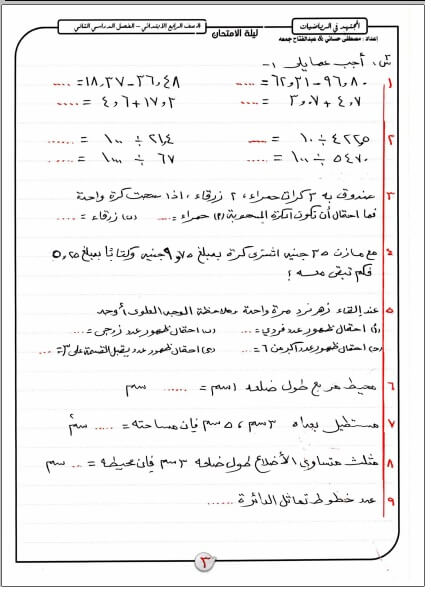 المجتهد في الرياضيات
ليلة الامتحان
الصف الرابع الابتدائي - الفصل الدراسي الثاني
إعداد : مصطفى حساني & عبدالفتاح جمعه
س : أجب عما يلى :-
١ ٩٦,٨٠ - ٦٢,٣١ = ..... ٣٦,٤٨ - ١٨,٢٧ = .....
٤,٧ + ٣,٠٧ = ..... ١٧,٢ + ٤,٦ = .....
٢ ٤٢٢,٥ ÷ ١٠ = ..... ٢١,٤ ÷ ١٠٠ = .....
٥٤٧٠ ÷ ١٠٠ = ..... ٦٧ ÷ ١٠٠٠ = .....
٣ صندوق به ٣ كرات حمراء ، ٢ زرقاء ، اذا سحبت كرة واحدة
فما احتمال أن تكون الكرة المسحوبة (أ) حمراء = ..... (ب) زرقاء = .....
٤ مع مازن ٣٥ جنيه اشترى كرة بمبلغ ٩,٧٥ جنيه وكتابًا بمبلغ ٥,٢٥
فكم تبقى معه ؟
٥ عند إلقاء زهر نرد مرة واحدة وملاحظة الوجه العلوى أوجد
(أ) احتمال ظهور عدد فردي = ..... (ب) احتمال ظهور عدد زوجى = .....
(ج) احتمال ظهور عدد أكبر من ٦ = ..... (د) احتمال ظهور عدد يقبل القسمة على ٣ = ...
٦ محيط مربع طول ضلعه ١ سم = ...... سم
٧ مستطيل بعداه ٣ سم ، ٥ سم فإن مساحته = ..... سم٢
٨ مثلث متساوى الأضلاع طول ضلعه ٣ سم فإن محيطه = ... سم
٩ عدد خطوط تماثل الدائرة ......
٣